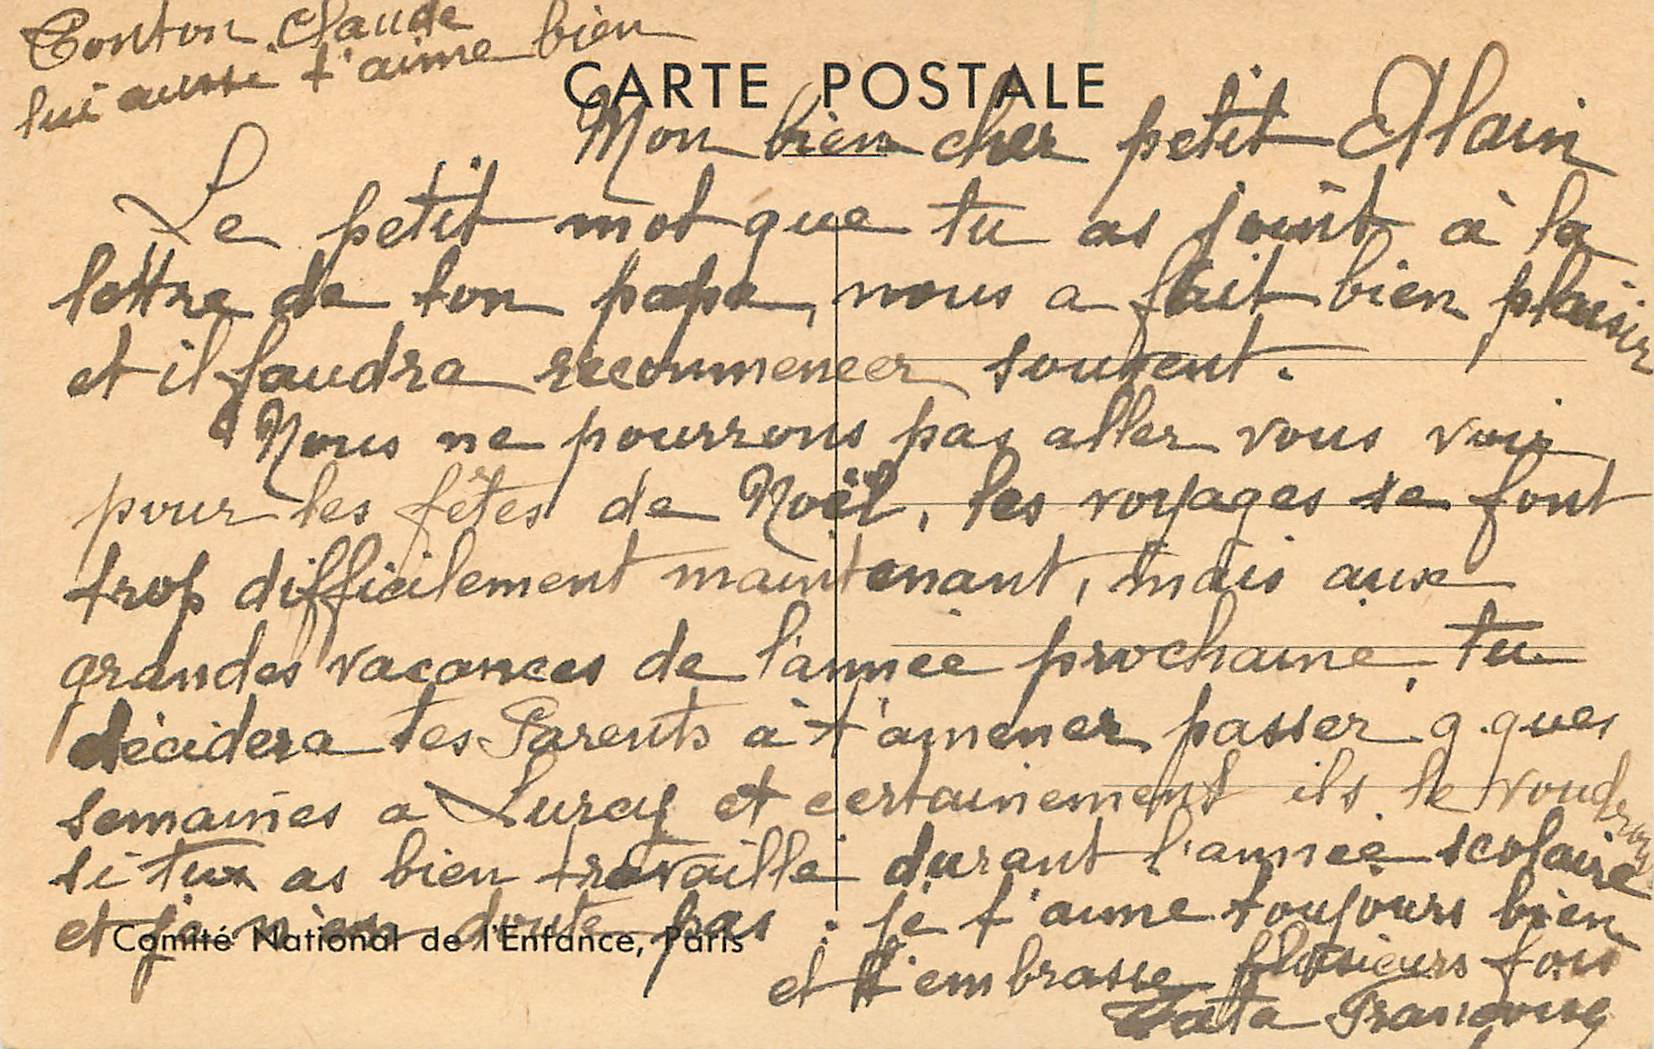 Tonton Claude
lui aussi t'aime bien
CARTE POSTALE
Mon bien cher petit Alain
Le petit mot que tu as joint à la
lettre de ton papa, nous a fait bien plaisir
et il faudra recommencer souvent.
Nous ne pourrons pas aller vous voir
pour les fêtes de Noël, les voyages se font
trop difficilement maintenant, mais aux
grandes vacances de l'année prochaine, tu
décidera tes Parents à t'amener passer q.ques
semaines a Lurcy et certainement ils le voudront
si tu as bien travaillé durant l'année scolaire
et je n'en doute pas : je t'aime toujours bien
Comité National de l'Enfance, Paris
et t'embrasse plusieurs fois
Tata Françoise